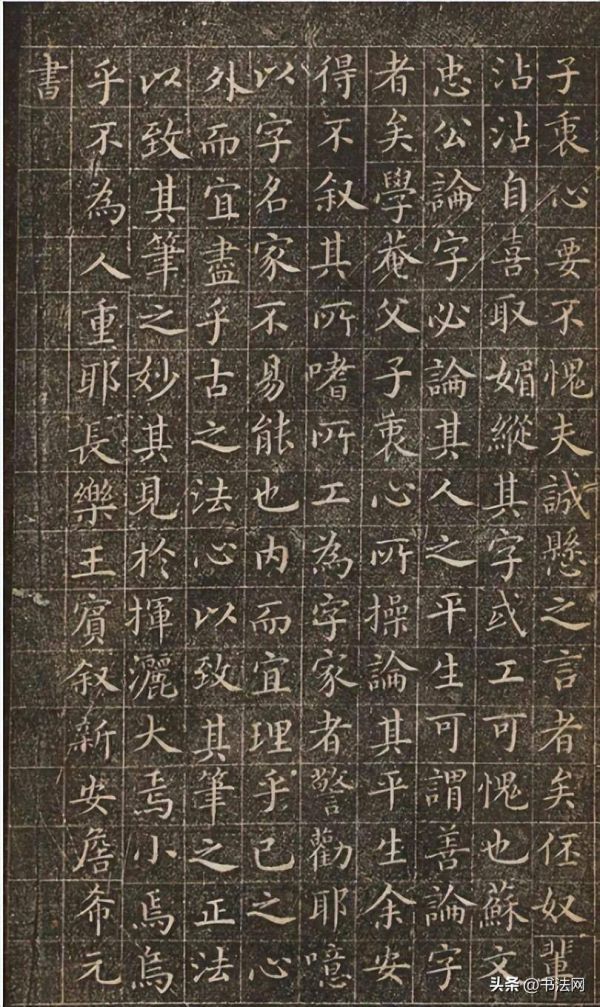 子衷心要不愧夫誠懸之言者矣伾奴輩
沾沾自喜取媚縱其字或工可愧也蘇文
忠公論字必論其人之平生可謂善論字
者矣學菴父子衷心所操論其平生余安
得不叙其所嗜所工為字家者警勸耶噫
以字名家不易能也内而宜理乎已之心
外而宜盡乎古之法心以致其筆之正法
以致其筆之妙其見於揮灑大焉小焉烏
乎不為人重耶長樂王賓叙新安詹希元
書
头条@书法网